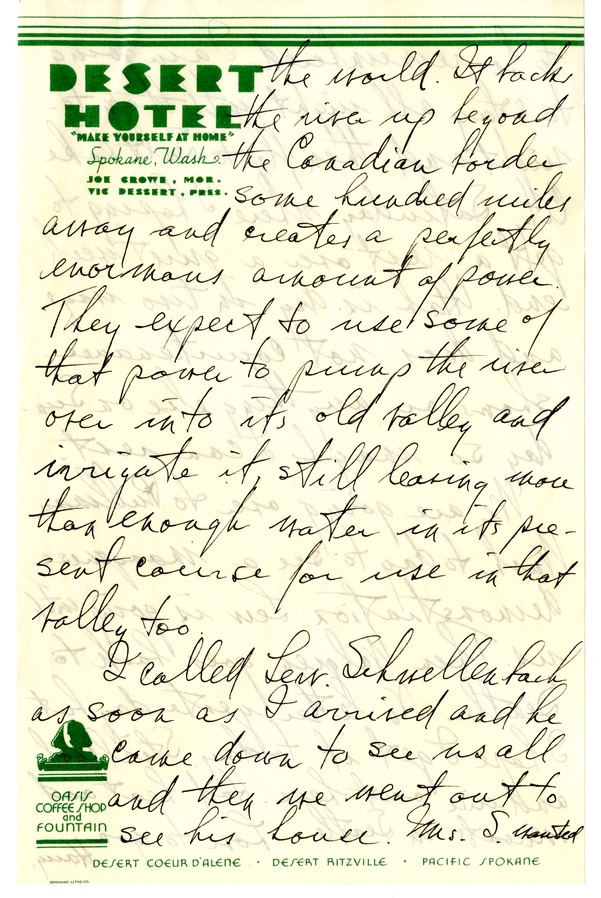 DESERT
HOTEL
"MAKE YOURSELF AT HOME"
Spokane, Wash.
JOE CROWE, MGR.
VIC DESSERT, PRES.
the world. It backs
the river up beyond
the Canadian border
some hundred miles
away and creates a perfectly
enormous amount of power.
They expect to use some of
that power to pump the river
over into its old valley and
irrigate it, still leaving more
than enough water in its pre-
sent course for use in that
valley too.
I called Sen. Schwellenbach
as soon as I arrived and he
came down to see us all
and then we went out to
see his house. Mrs. S. wanted
OASIS
COFFEE SHOP
and
FOUNTAIN
DESERT COEUR D'ALENE · DESERT RITZVILLE · PACIFIC SPOKANE
SPOKANE LITHO CO.